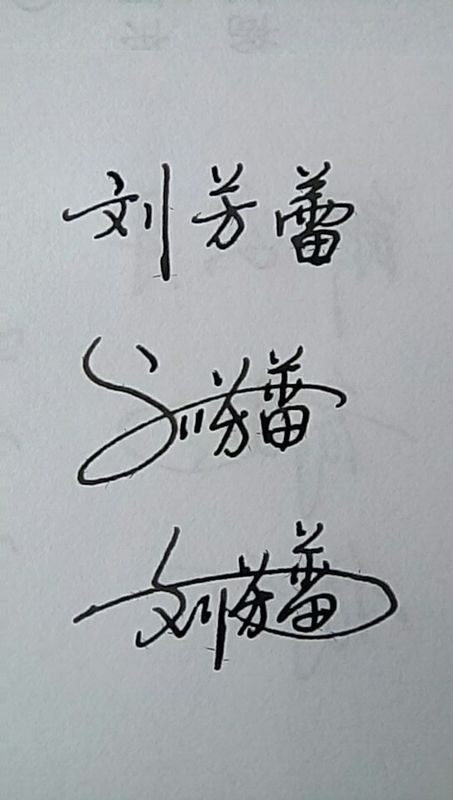 刘芳蕾
刘芳蕾
刘芳蕾